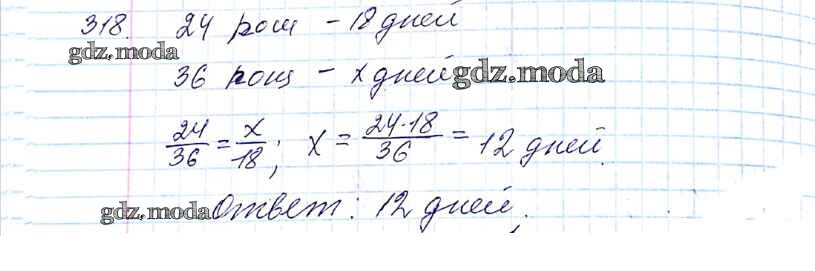 318. 24 рош – 18 дней
gdz.moda
36 рош – x дней gdz.moda
24/36 = x/18; x = 24·18/36 = 12 дней.
gdz.moda Ответ: 12 дней.